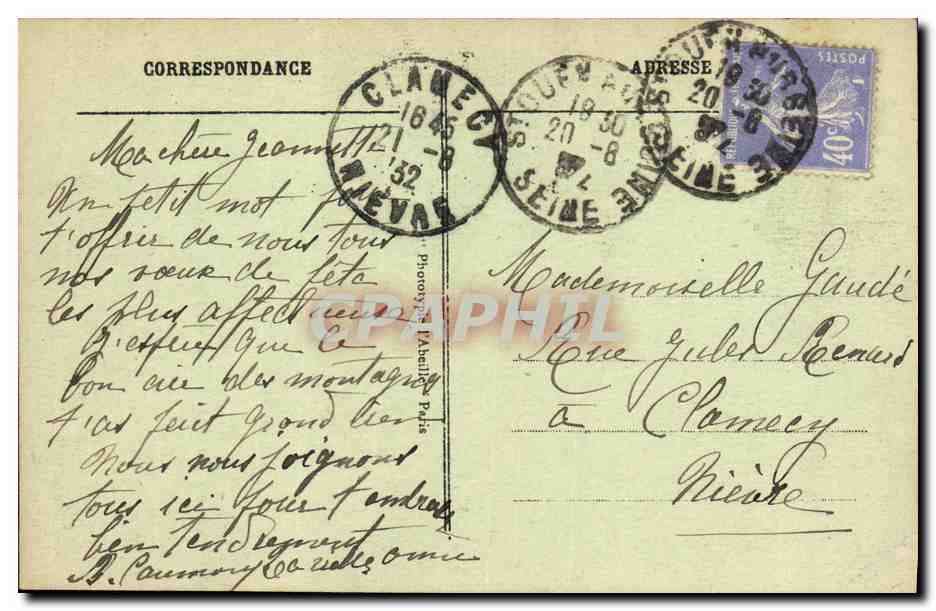 CORRESPONDANCE
ADRESSE
CLAMECY
16 45
21 -8
32
NIÈVRE
ST OUEN
19 30
20 -8
SEINE
ST OUEN
19 30
20 -8
SEINE
POSTES
40c
Ma chère Jeannette
Un petit mot
t'offrir de nous tous
nos vœux de fête
les plus affectueux
J'espère que le
bon air des montagnes
t'as fait grand bien
Nous nous joignons
tous ici pour t
bien tendrement
Phototypie l'Abeille Paris
Mademoiselle Gaudé
Rue Jules Renard
à Clamecy
Nièvre
CPAPHIL